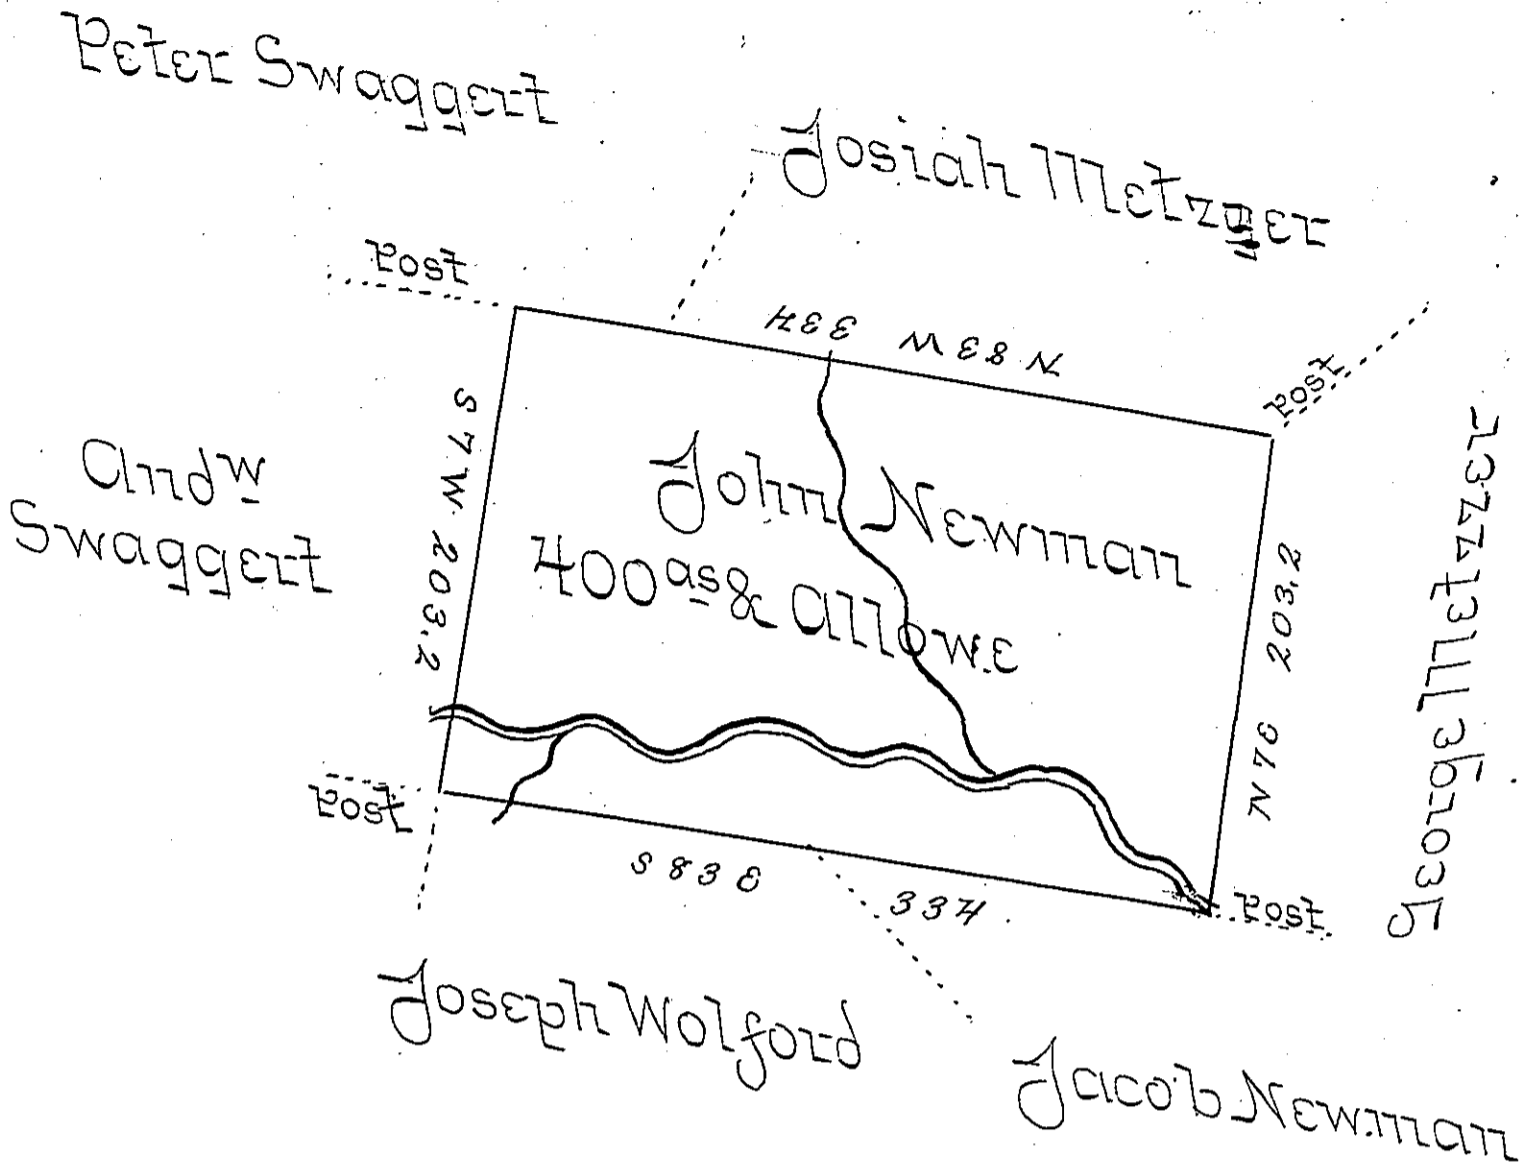 Peter Swaggert
Josiah Metzger
Post
N 83 W 334
Post
Andw
Swaggert
S 7 W 203.2
John Newman
400as & Allowe
N 7 E 203.2
George Metzzer
Post
S 83 E 334
Post
Joseph Wolford
Jacob Newman